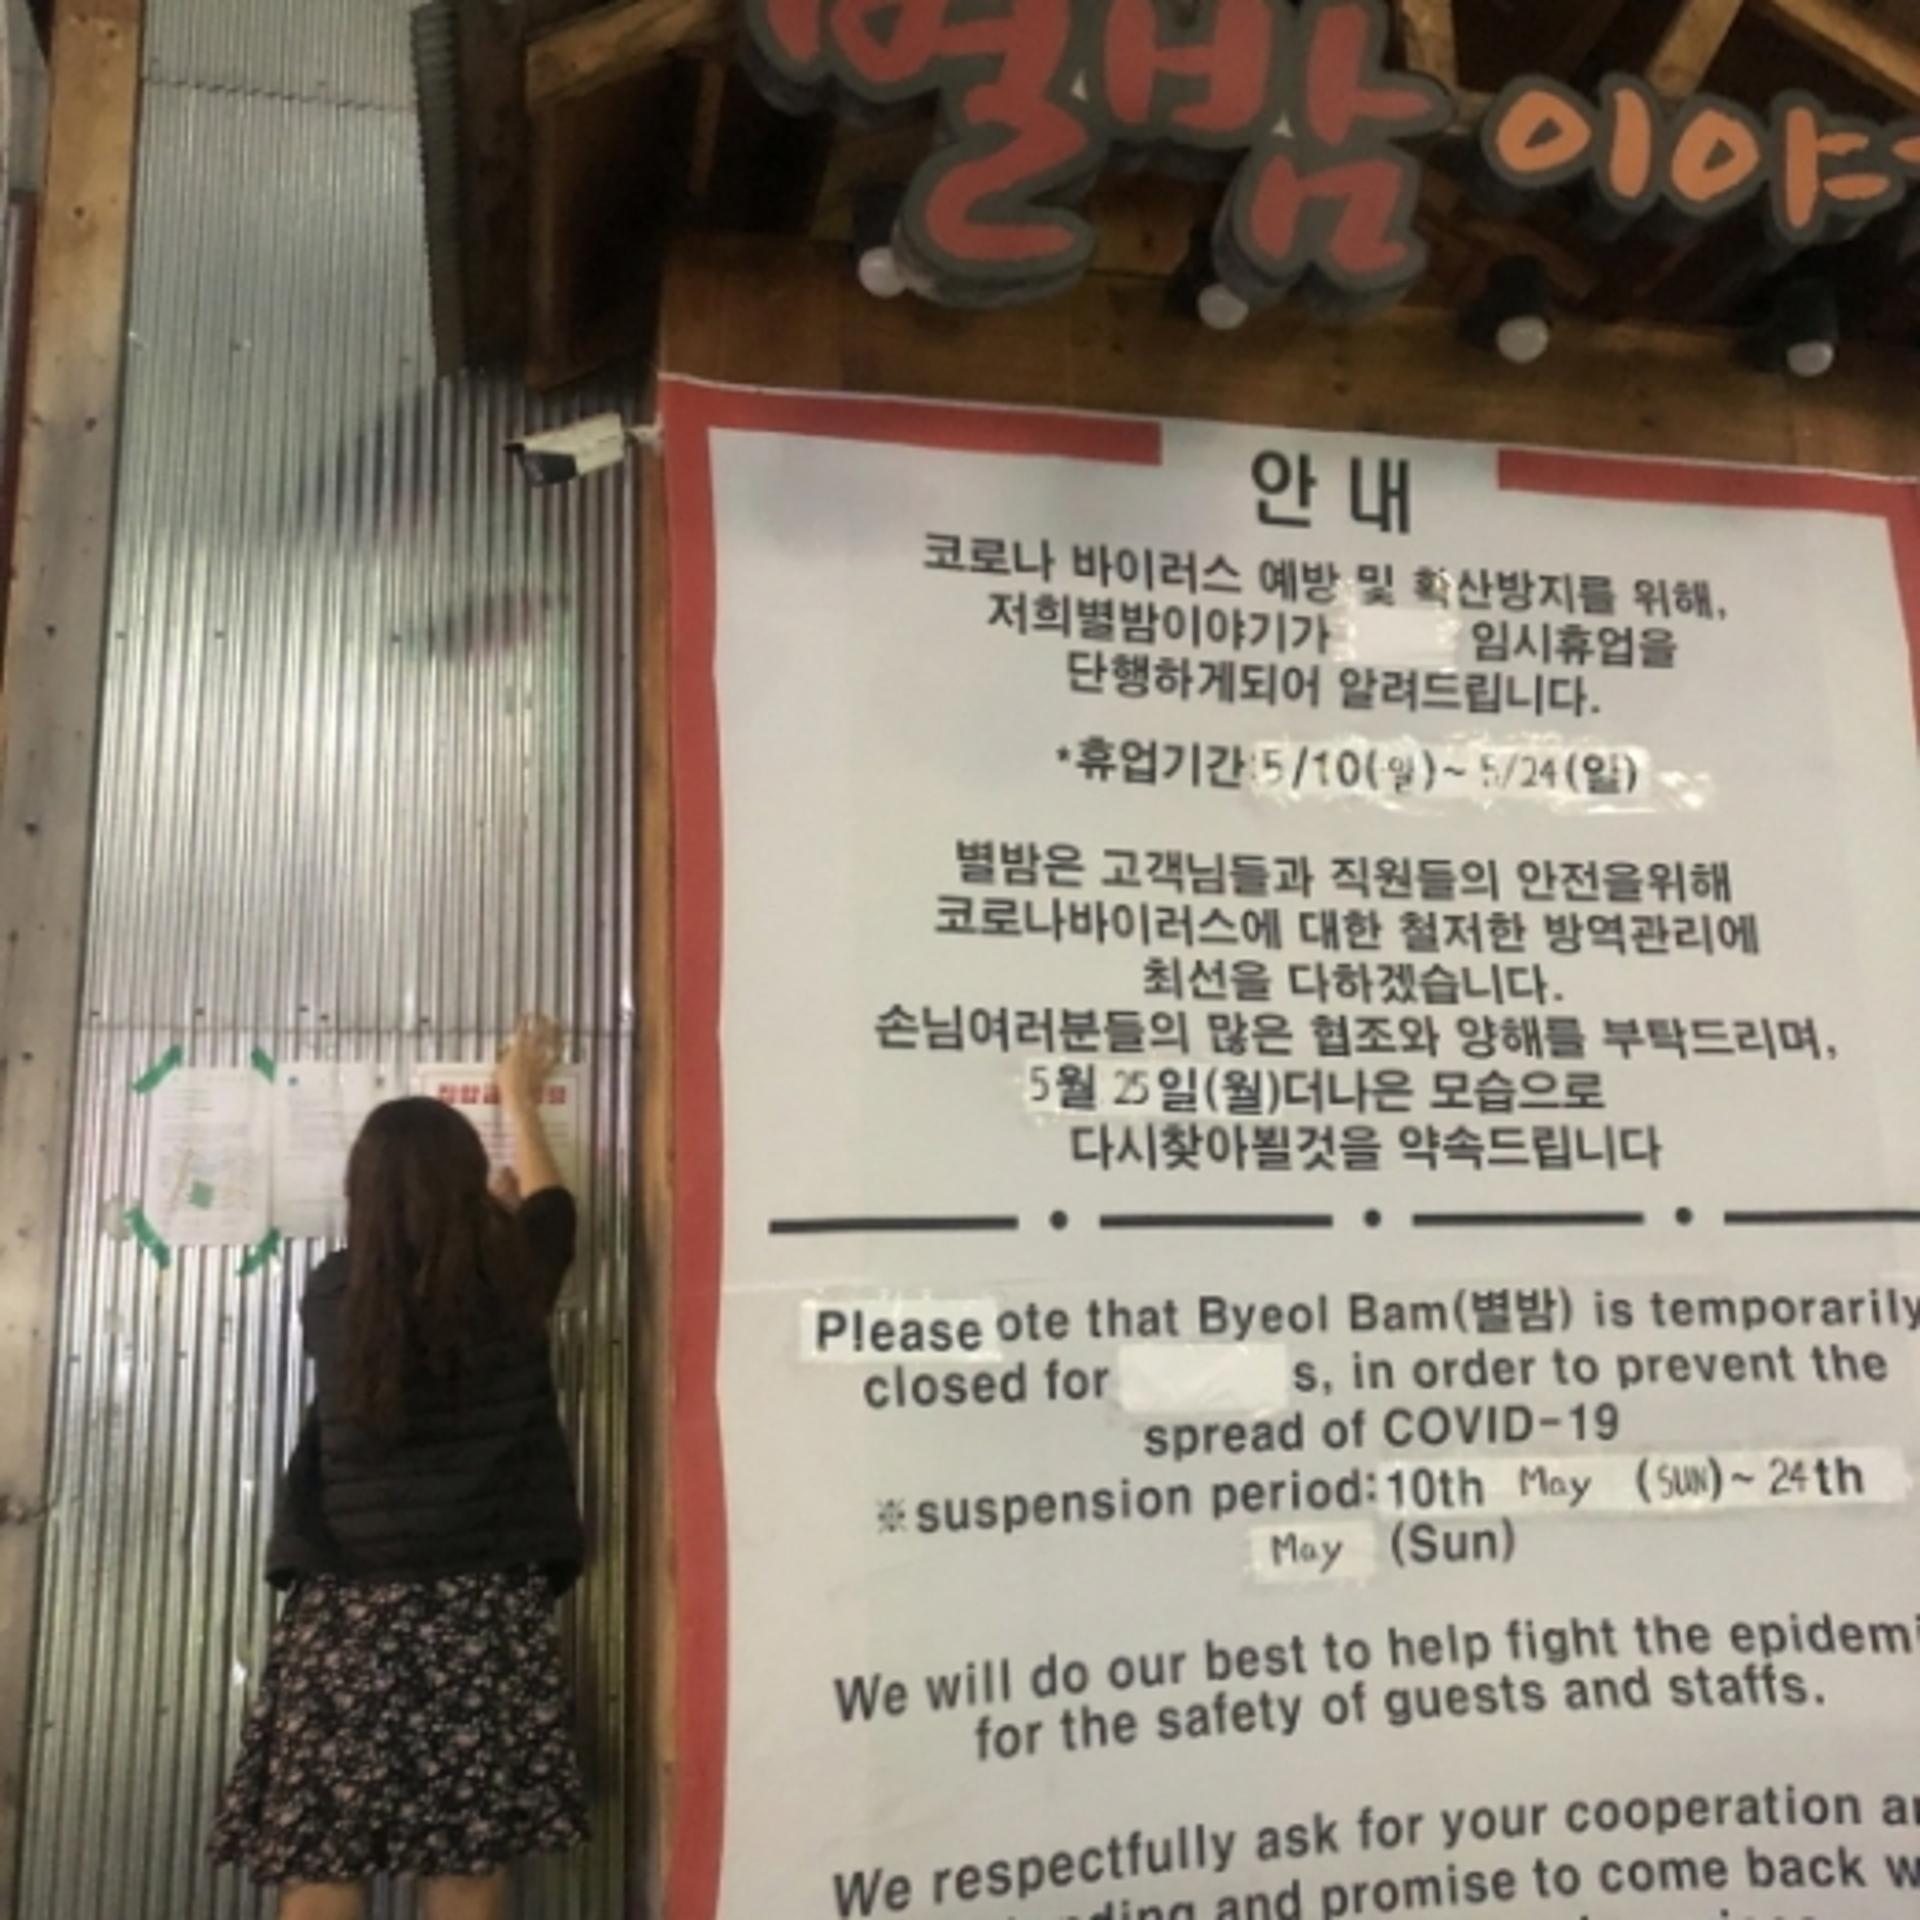 별밤 이야
안 내
코로나 바이러스 예방 및 확산방지를 위해,
저희별밤이야기가 임시휴업을
단행하게되어 알려드립니다.
*휴업기간:5/10(일)~ 5/24(일)
별밤은 고객님들과 직원들의 안전을위해
코로나바이러스에 대한 철저한 방역관리에
최선을 다하겠습니다.
손님여러분들의 많은 협조와 양해를 부탁드리며,
5월 25일(월)더나은 모습으로
다시찾아뵐것을 약속드립니다
Please ote that Byeol Bam(별밤) is temporarily
closed for s, in order to prevent the
spread of COVID-19
※suspension period:10th May (SUN)~ 24th
May (Sun)
We will do our best to help fight the epidemi
for the safety of guests and staffs.
We respectfully ask for your cooperation an
nding and promise to come back w